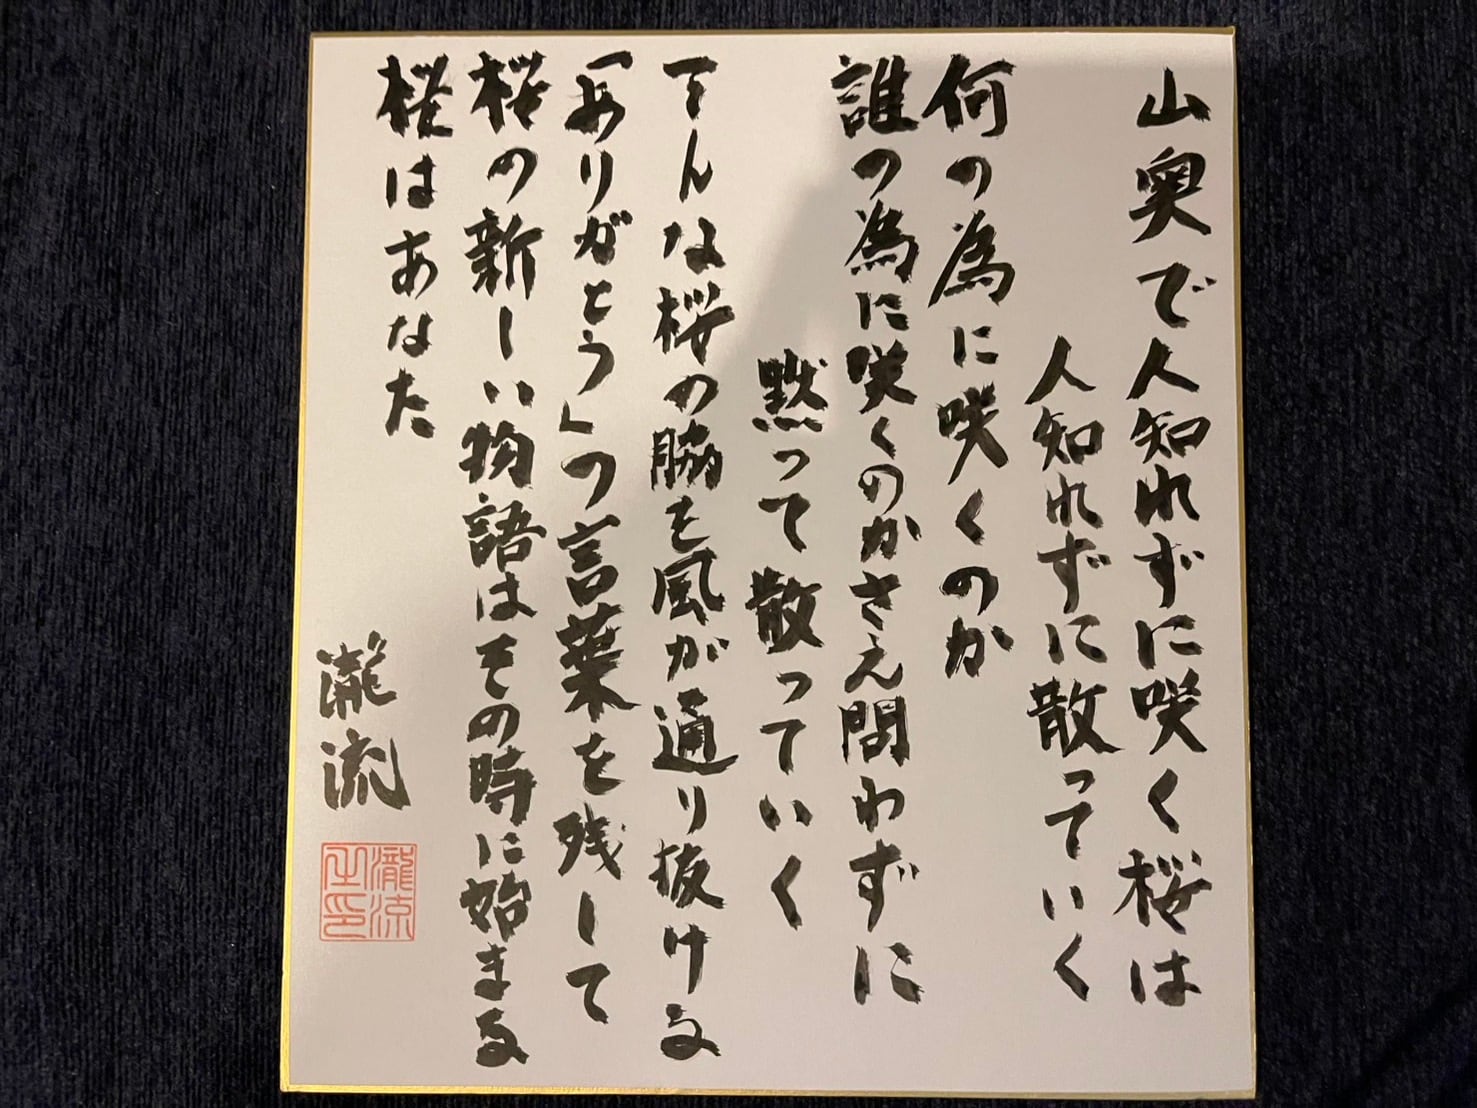 山奥で人知れずに咲く桜は
人知れずに散っていく
何の為に咲くのか
誰の為に咲くのかさえ問わずに
黙って散っていく
そんな桜の脇を風が通り抜ける
「ありがとう」の言葉を残して
桜の新しい物語はその時に始まる
桜はあなた
瀧流
瀧流
之印